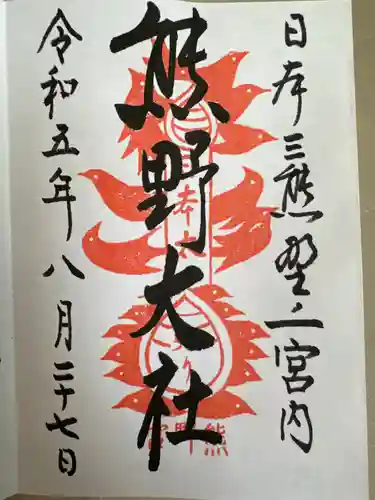 日本三熊野之宮内
熊野大社
令和五年八月二十七日